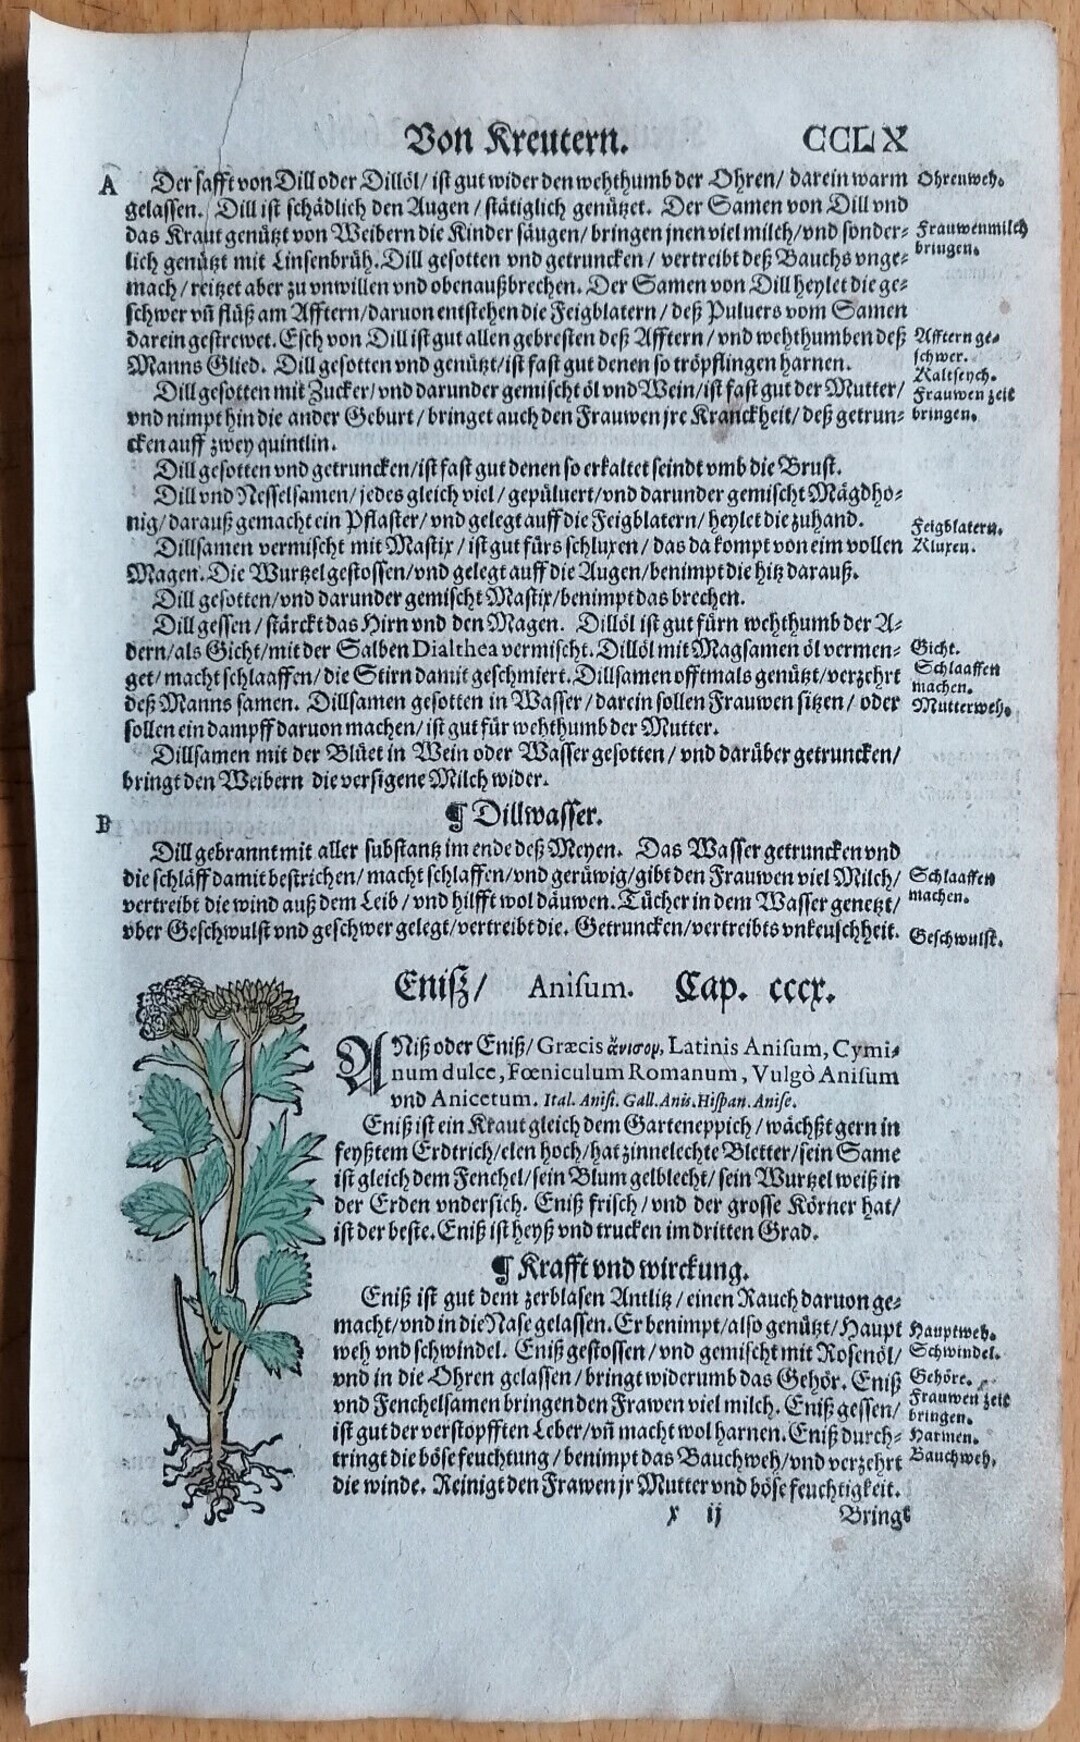 Von Kreutern. CCLX
A Der safft von Dill oder Dillöl/ ist gut wider den wehthumb der Ohren/ darein warm Ohrenweh.
gelassen. Dill ist schädlich den Augen / stätiglich genützet. Der Samen von Dill vnd
das Kraut genützt von Weibern die Kinder säugen/ bringen jnen viel milch/ vnd sonder= Frauwenmilch
lich genützt mit Linsenbrüh. Dill gesotten vnd getruncken/ vertreibt deß Bauchs vnge= bringen.
mach/ reitzet aber zu vnwillen vnd obenaußbrechen. Der Samen von Dill heylet die ge=
schwer vñ flüß am Afftern/ daruon entstehen die Feigblatern/ deß Puluers vom Samen
darein gestrewet. Esch von Dill ist gut allen gebresten deß Afftern/ vnd wehthumben deß Afftern ge=
schwer.
Manns Glied. Dill gesotten vnd genützt/ ist fast gut denen so tröpflingen harnen. Kaltseych.
Dill gesotten mit Zucker/ vnd darunder gemischt öl vnd Wein/ ist fast gut der Mutter/ Frauwen zeit
vnd nimpt hin die ander Geburt/ bringet auch den Frauwen jre Kranckheit/ deß getrun= bringen.
cken auff zwey quintlin.
Dill gesotten vnd getruncken/ ist fast gut denen so erkaltet seindt vmb die Brust.
Dill vnd Nesselsamen/ jedes gleich viel/ gepüluert/ vnd darunder gemischt Mägdho=
nig/ darauß gemacht ein Pflaster/ vnd gelegt auff die Feigblatern/ heylet die zuhand. Feigblatern.
Dillsamen vermischt mit Mastix/ ist gut fürs schluxen/ das da kompt von eim vollen Kluxen.
Magen. Die Wurtzel gestossen/ vnd gelegt auff die Augen/ benimpt die hitz darauß.
Dill gesotten/ vnd darunder gemischt Mastix/ benimpt das brechen.
Dill gessen/ stärckt das Hirn vnd den Magen. Dillöl ist gut fürn wehthumb der A=
dern/ als Gicht/ mit der Salben Dialthea vermischt. Dillöl mit Magsamen öl vermen= Gicht.
get/ macht schlaaffen/ die Stirn damit geschmiert. Dillsamen offtmals genützt/ verzehrt Schlaaffen
machen.
deß Manns samen. Dillsamen gesotten in Wasser/ darein sollen Frauwen sitzen/ oder Mutterweh.
sollen ein dampff daruon machen/ ist gut für wehthumb der Mutter.
Dillsamen mit der Blüet in Wein oder Wasser gesotten/ vnd darüber getruncken/
bringt den Weibern die versigene Milch wider.
B ¶ Dillwasser.
Dill gebrannt mit aller substantz im ende deß Meyen. Das Wasser getruncken vnd
die schläff damit bestrichen/ macht schlaffen/ vnd gerüwig/ gibt den Frauwen viel Milch/ Schlaaffen
vertreibt die wind auß dem Leib/ vnd hilfft wol däuwen. Tücher in dem Wasser genetzt/ machen.
vber Geschwulst vnd geschwer gelegt/ vertreibt die. Getruncken/ vertreibts vnkeuschheit. Geschwulst.
Enisz/ Anisum. Cap. cccx.
ANiß oder Eniß/ Græcis ἄνισον, Latinis Anisum, Cymi-
num dulce, Fœniculum Romanum, Vulgò Anisum
vnd Anicetum. Ital. Anisi. Gall. Anis. Hispan. Anise.
Eniß ist ein Kraut gleich dem Garteneppich/ wächßt gern in
feyßtem Erdtrich/ elen hoch/ hat zinnelechte Bletter/ sein Same
ist gleich dem Fenchel/ sein Blum gelblecht/ sein Wurtzel weiß in
der Erden vndersich. Eniß frisch/ vnd der grosse Körner hat/
ist der beste. Eniß ist heyß vnd trucken im dritten Grad.
¶ Krafft vnd wirckung.
Eniß ist gut dem zerblasen Antlitz/ einen Rauch daruon ge=
macht/ vnd in die Nase gelassen. Er benimpt/ also genützt/ Haupt Hauptweh.
weh vnd schwindel. Eniß gestossen/ vnd gemischt mit Rosenöl/ Schwindel.
vnd in die Ohren gelassen/ bringt widerumb das Gehör. Eniß Gehöre.
vnd Fenchelsamen bringen den Frawen viel milch. Eniß gessen/ Frauwen zeit
bringen.
ist gut der verstopfften Leber/ vñ macht wol harnen. Eniß durch= Harmen.
tringt die böse feuchtung/ benimpt das Bauchweh/ vnd verzehrt Bauchweh.
die winde. Reinigt den Frawen jr Mutter vnd böse feuchtigkeit.
x ij Bringt